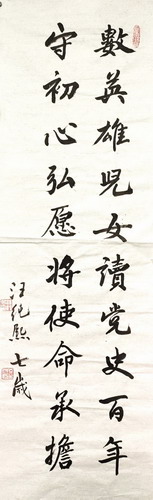 數英雄児女讀党史百年
守初心弘愿將使命承擔
汪純熙七歲